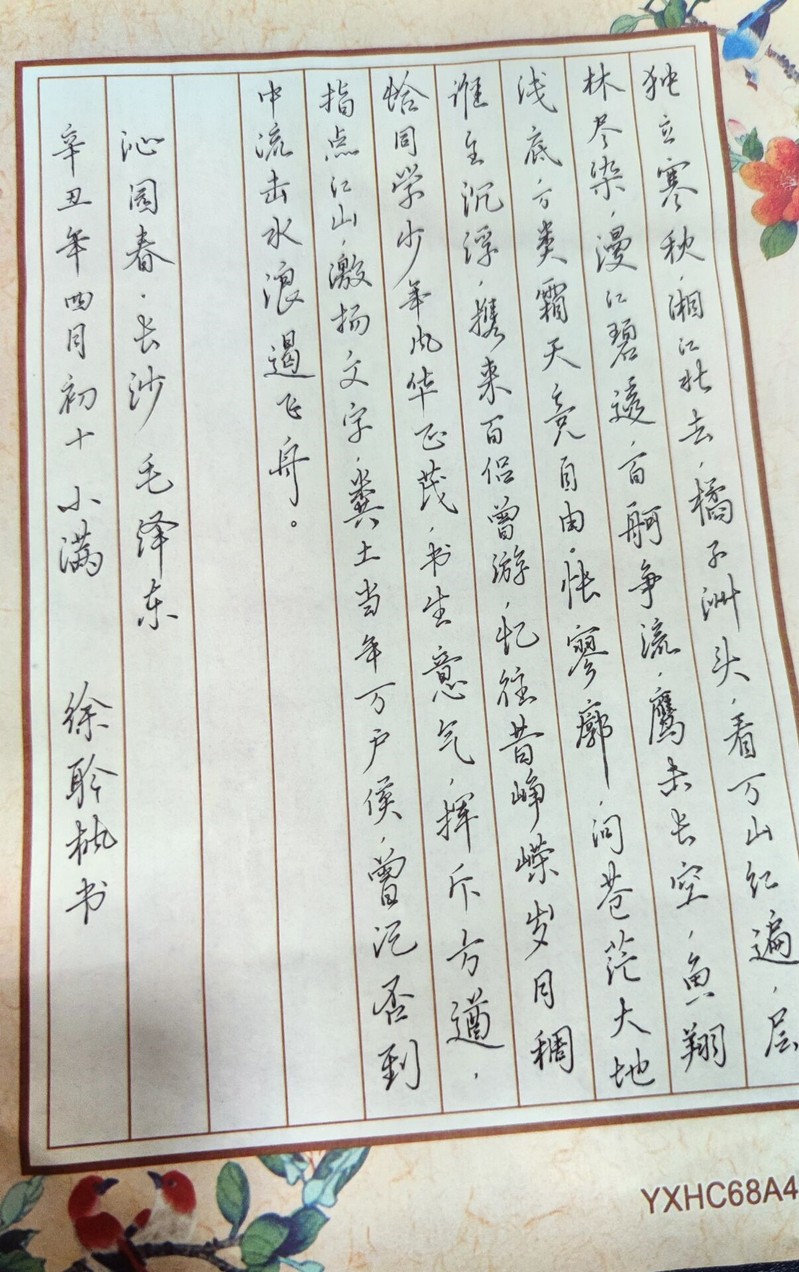 独立寒秋，湘江北去，橘子洲头，看万山红遍，层
林尽染，漫江碧透，百舸争流，鹰击长空，鱼翔
浅底，万类霜天竞自由。怅寥廓，问苍茫大地
谁主沉浮，携来百侣曾游，忆往昔峥嵘岁月稠
恰同学少年风华正茂，书生意气，挥斥方遒，
指点江山，激扬文字，粪土当年万户侯，曾记否到
中流击水浪遏飞舟。
沁园春·长沙 毛泽东
辛丑年四月初十 小满 徐聆执书
YXHC68A4